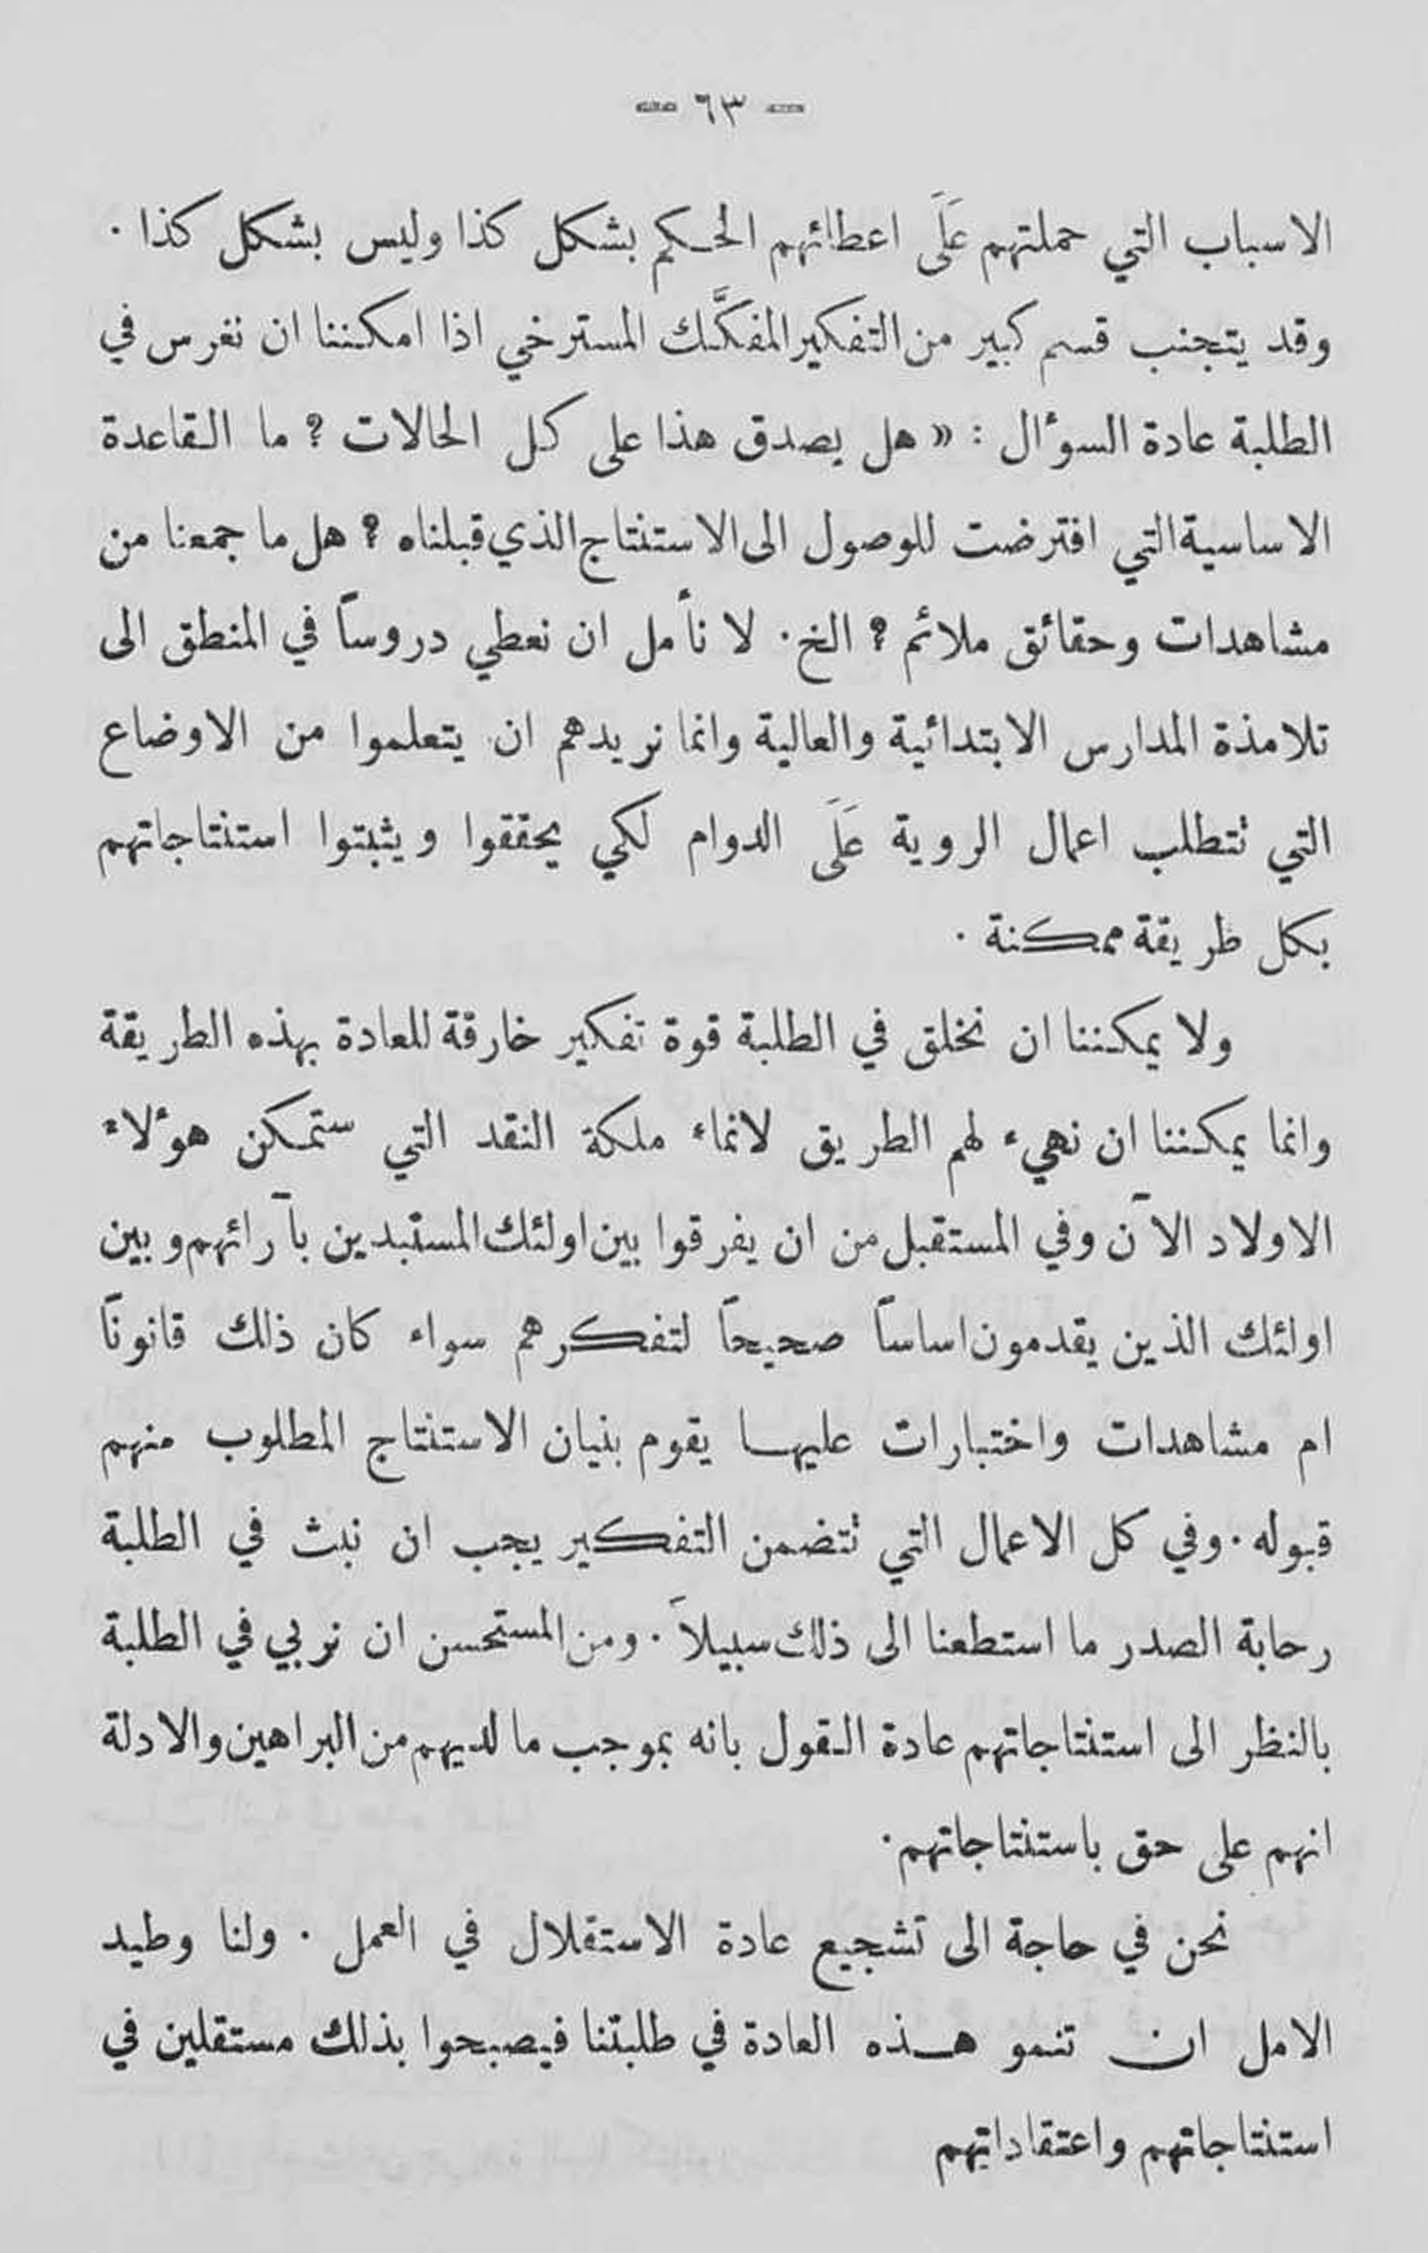 — ٦٣ —
الاسباب التي حملتهم عَلَى اعطائهم الحكم بشكل كذا وليس بشكل كذا .
وقد يتجنب قسم كبير من التفكير المفكَّك المسترخي اذا امكننا ان نغرس في
الطلبة عادة السوأل : « هل يصدق هذا على كل الحالات ؟ ما القاعدة
الاساسية التي افترضت للوصول الى الاستنتاج الذي قبلناه ؟ هل ما جمعنا من
مشاهدات وحقائق ملائم ؟ الخ . لا نأمل ان نعطي دروساً في المنطق الى
تلامذة المدارس الابتدائية والعالية وانما نريدهم ان يتعلموا من الاوضاع
التي تتطلب اعمال الروية عَلَى الدوام لكي يحققوا ويثبتوا استنتاجاتهم
بكل طريقة ممكنة .
ولا يمكننا ان نخلق في الطلبة قوة تفكير خارقة للعادة بهذه الطريقة
وانما يمكننا ان نهيء لهم الطريق لانماء ملكة النقد التي ستمكن هوءلاء
الاولاد الآن وفي المستقبل من ان يفرقوا بين اولئك المستبدين بآرائهم وبين
اولئك الذين يقدمون اساساً صحيحاً لتفكرهم سواء كان ذلك قانوناً
ام مشاهدات واختبارات عليها يقوم بنيان الاستنتاج المطلوب منهم
قبوله . وفي كل الاعمال التي تتضمن التفكير يجب ان نبث في الطلبة
رحابة الصدر ما استطعنا الى ذلك سبيلاً . ومن المستحسن ان نربي في الطلبة
بالنظر الى استنتاجاتهم عادة القول بانه بموجب ما لديهم من البراهين والادلة
انهم على حق باستنتاجاتهم .
نحن في حاجة الى تشجيع عادة الاستقلال في العمل . ولنا وطيد
الامل ان تنمو هذه العادة في طلبتنا فيصبحوا بذلك مستقلين في
استنتاجاتهم واعتقاداتهم